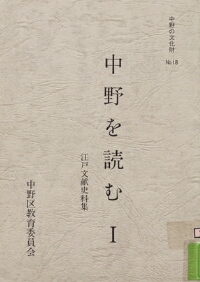 中野の文化財
No.18
中野を読む I
江戸文献史料集
中野区教育委員会